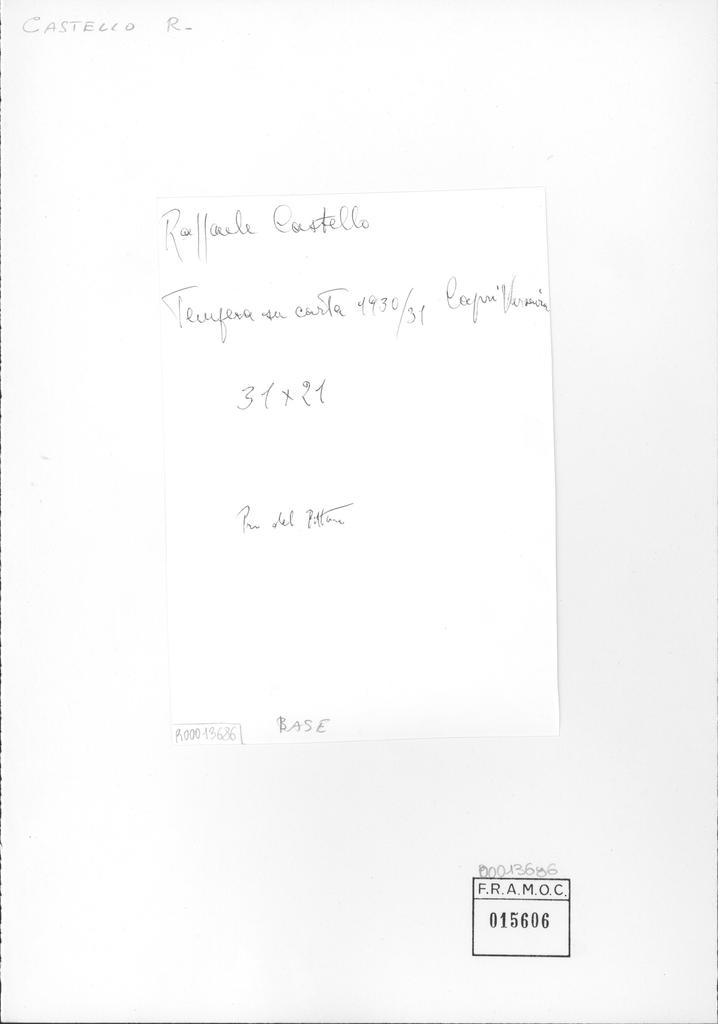 CASTELLO R-
Raffaele Castello
Tempera su carta 1930/31 Capri
31 x 21
del
R00013686
BASE
00013686
F.R.A.M.O.C.
015606